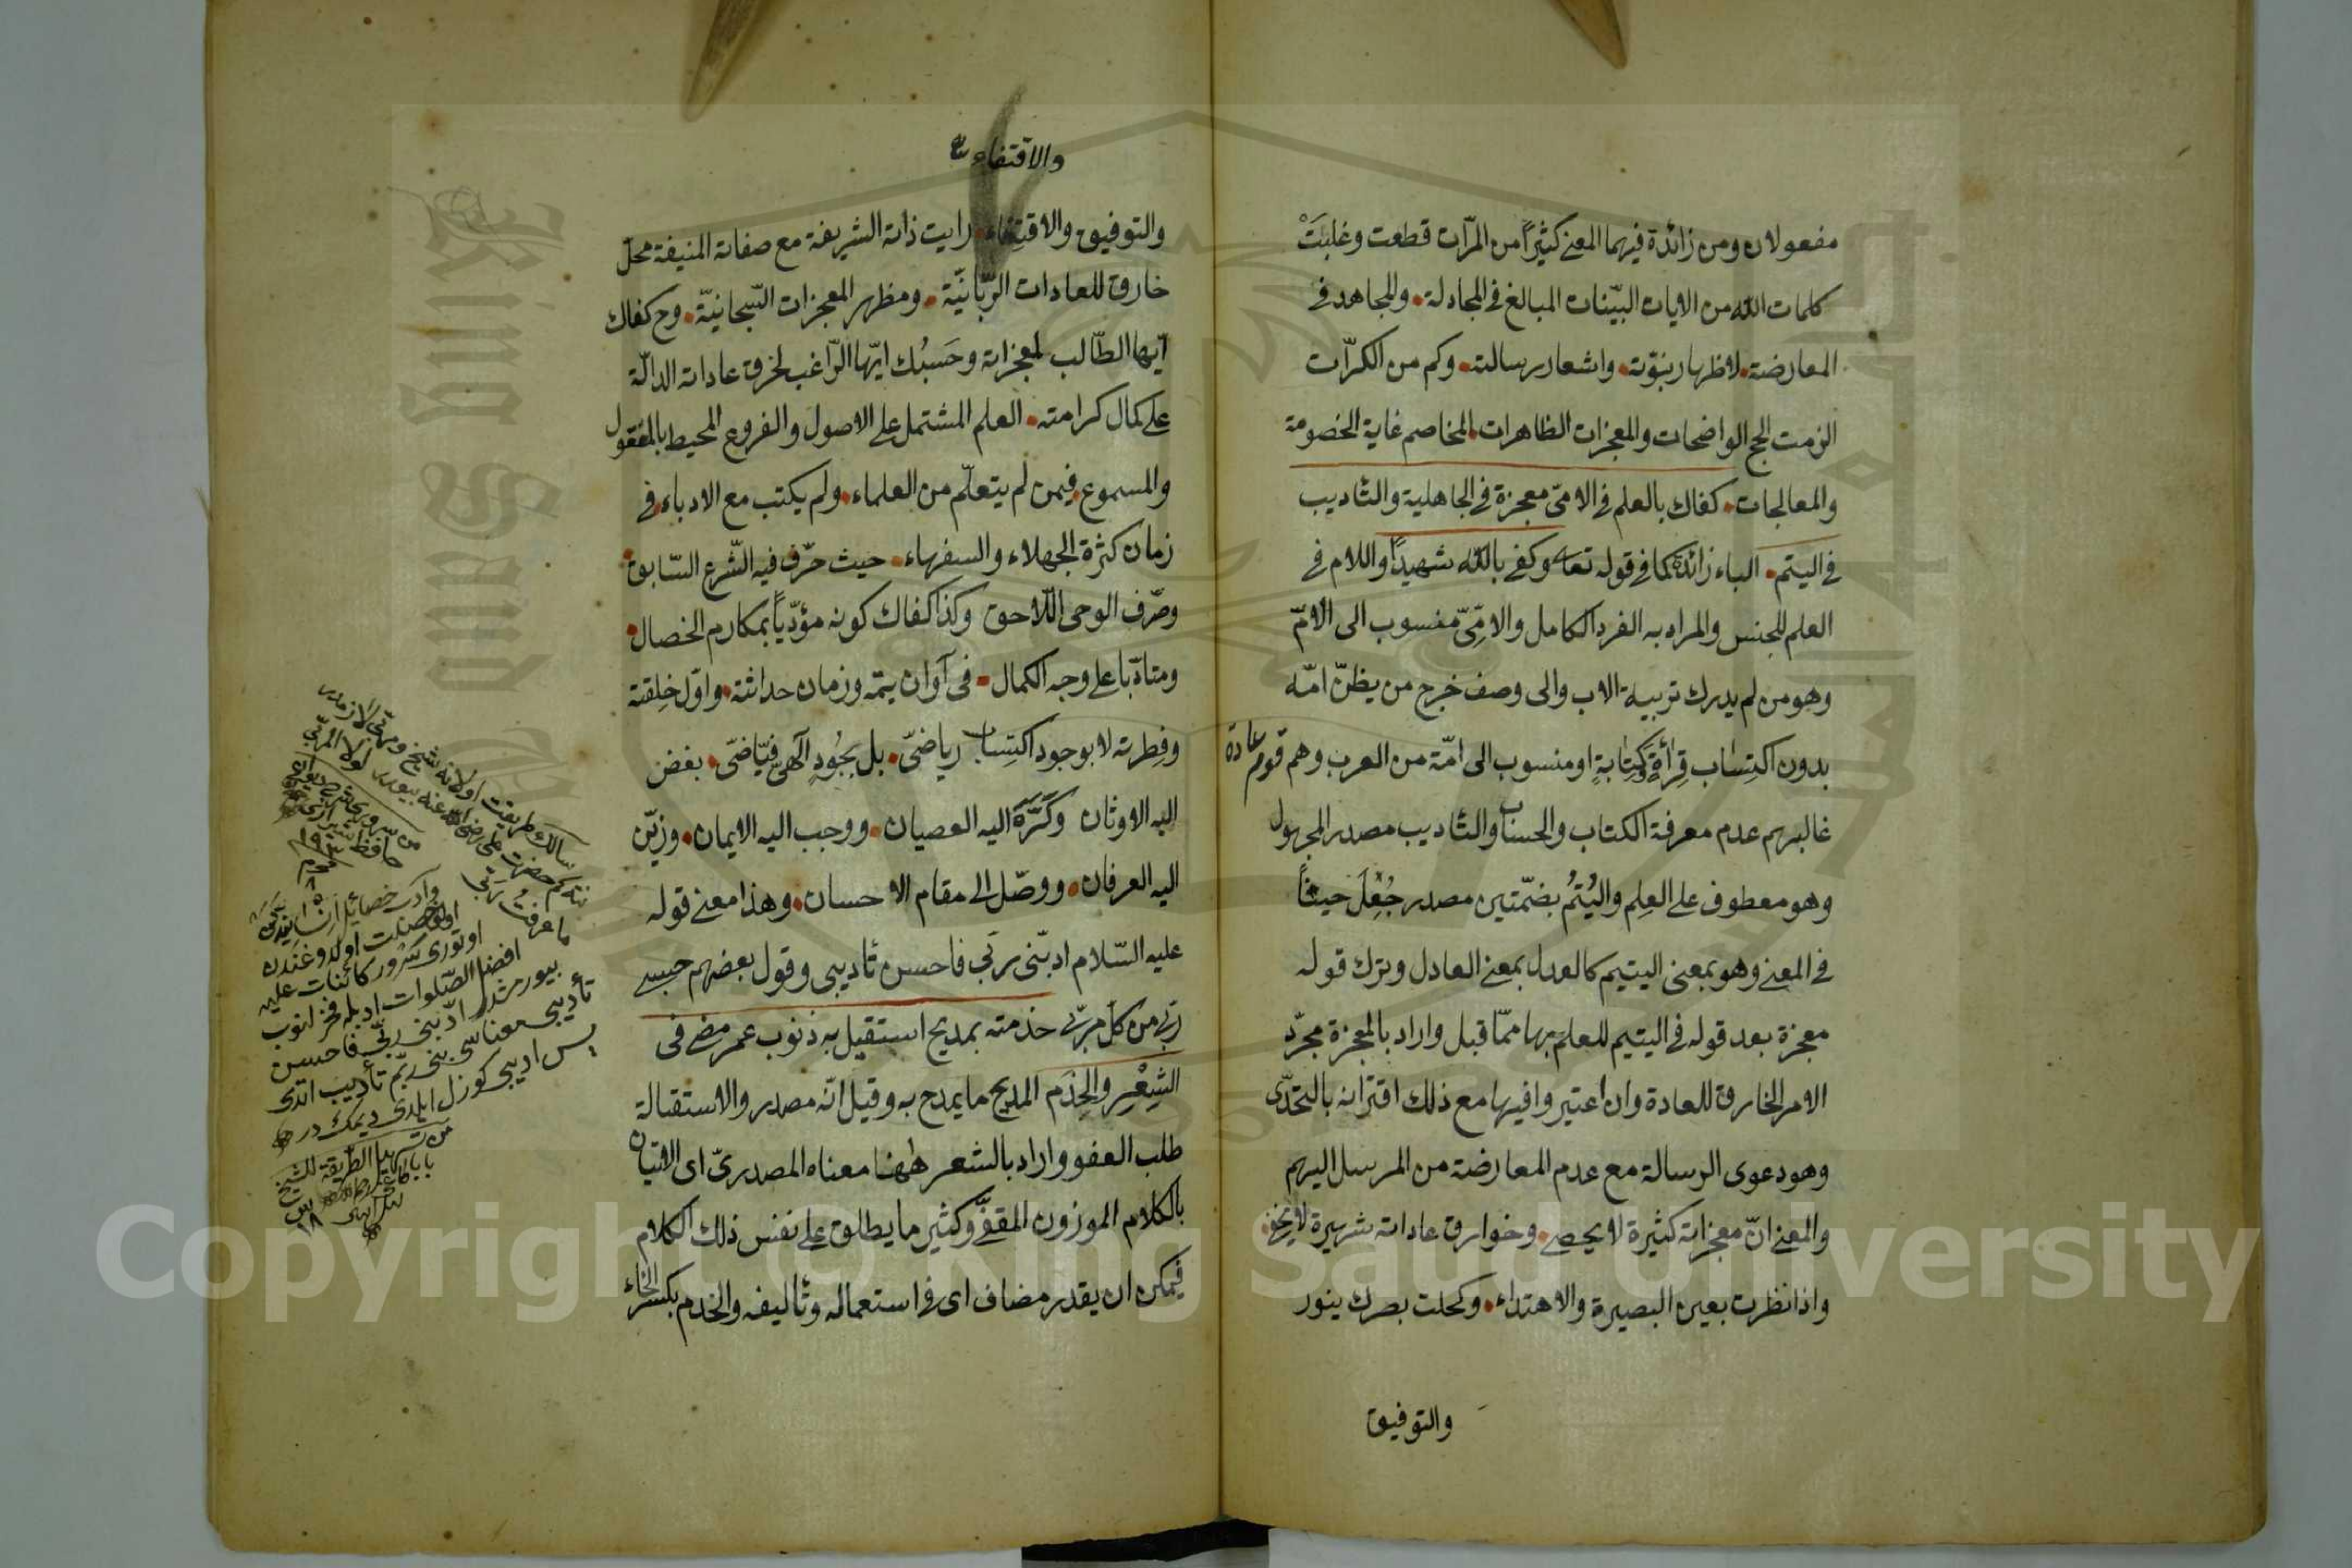 مفعولان ومن زائدة فيهما المعنى كثيرًا من المرّات قطعت وغلبَتْ
كلمات الله من الايات البيّنات المبالغ فى المجادلة. والمجاهد فى
المعارضة. لاظهار نبوّته. واشعار رسالته. وكم من الكرّات
الزمت الحج الواضحات والمعجزات الظاهرات. المخاصم غاية الخصومة
والمعالجات. كفاك بالعلم فى الامىّ معجزة فى الجاهلية والتاديب
فى اليتم. الباء زائدة كما فى قوله تعالى وكفى بالله شهيدًا واللام فى
العلم للجنس والمراد به الفرد الكامل والامّىّ منسوب الى الامّ
وهو من لم يدرك تربية الاب والى وصف خرج من يظنّ امّه
بدون اكتِسَاب قِرأةٍ وَكِتَابةٍ او منسوب الى امّة من العرب وهم قوم عادة
غالبهم عدم معرفة الكتاب والحساب والتاديب مصدر المجهول
وهو معطوف على العِلم واليُتُم بضمّتين مصدر جُعِلَ حيثاً
فى المعنى وهو بمعنى اليتيم كالعدل بمعنى العادل وترك قوله
معجزة بعد قوله فى اليتيم للعلم بها ممّا قبل واراد بالمعجزة مجرّد
الامر الخارق للعادة وان اعتبروا فيها مع ذلك اقترانه بالتحدّى
وهو دعوى الرسالة مع عدم المعارضة من المرسل اليهم
والمعنى انّ معجزاته كثيرة لا يحصى. وخوارق عاداته شهيرة لا يخفى.
واذا نظرت بعين البصيرة والاهتداء. وكحلت بصرك بنور
والتوفيق
والاقتفاء
والتوفيق والاقتفاء. رايت ذاته الشريفة مع صفاته المنيفة محلّ
خارق للعادات الربّانيّة. ومظهر المعجزات السّبحانيّة. وح كفاك
ايّها الطّالب لمعجزاته وحَسبُك ايّها الرّاغب لخرق عاداته الدالّة
على كمال كرامته. العلم المشتمل على الاصول والفروع المحيط بالمعقول
والمسموع. فيمن لم يتعلّم من العلماء. ولم يكتب مع الادباء. فى
زمان كثرة الجهلاء والسفهاء. حيث حرّف فيه الشّرع السّابق.
وصّرف الوحى اللّاحق وكذا كفاك كونه مؤدّباً بمكارم الخصال.
ومتأدّبا على وجه الكمال. فى آوان يتمه وزمان حداثته. واوّل خِلقته
وفِطرته لا بوجود اكتِسَاب رياضىّ. بل بجُودٍ الَهىّ فيّاضىّ. بغض
اليه الاوثان وَكَرَّهَ اليه العصيان. ووجب اليه الايمان. وزيّن
اليه العرفان. ووصّل الى مقام الاحسان. وهذا معنى قوله
عليه السّلام ادبّنى ربّى فاحسن تأديبى وقول بعضهم حسبى
ربّى من كل مربّى خدمته بمديح استقيل به ذنوب عمر مضى فى
الشِعْرِ والخِدَم المديح ما يمدح به وقيل انّه مصدر والاستقالة
طلب العفو واراد بالشعر ههنا معناه المصدرىّ اى الاتيان
بالكلام الموزون المقفَّى وكثير ما يطلق على نفس ذلك الكلام
فيمكن ان يقدر مضاف اى فى استعماله وتأليفه والخدم بكسر الخاء
سالك طريقت اولانه شيخ ومربّى لازمدر
نته كم حضرت على رضى الله عنه بيورر لولا المربّى
ما عرفت ربّى
حافظ شيرازى
افضل الصّلوات
بيورمشدر ادّبنى ربّى فاحسن
تأديبى معناسى بنى ربّم تأديب اتدى
پس اديبى كوزل ايلدى ديمكدر
من تسهيل الطريقة للشيخ